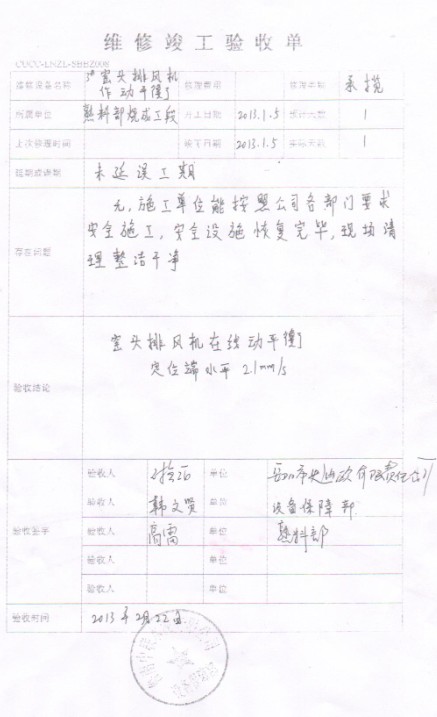 维修竣工验收单
维修设备名称 3#窑头排风机 修理费用
作动平衡 承揽
所属单位 熟料部烧成工段 开工日期 2013.1.5 预计天数 1
上次修理时间 竣工日期 2013.1.5 实际天数 1
延期或误期 未延误工期
无,施工单位能按照公司各部门要求
安全施工,安全设施恢复完毕,现场清
理整洁干净
存在问题
窑头排风机在线动平衡
定位端水平 21mm/s
验收结论
验收人 单位
验收人 韩文贤 单位 设备保障部
验收签字 验收人 高雷 单位 熟料部
验收人 单位
验收人 单位
验收时间 2013年2月22日